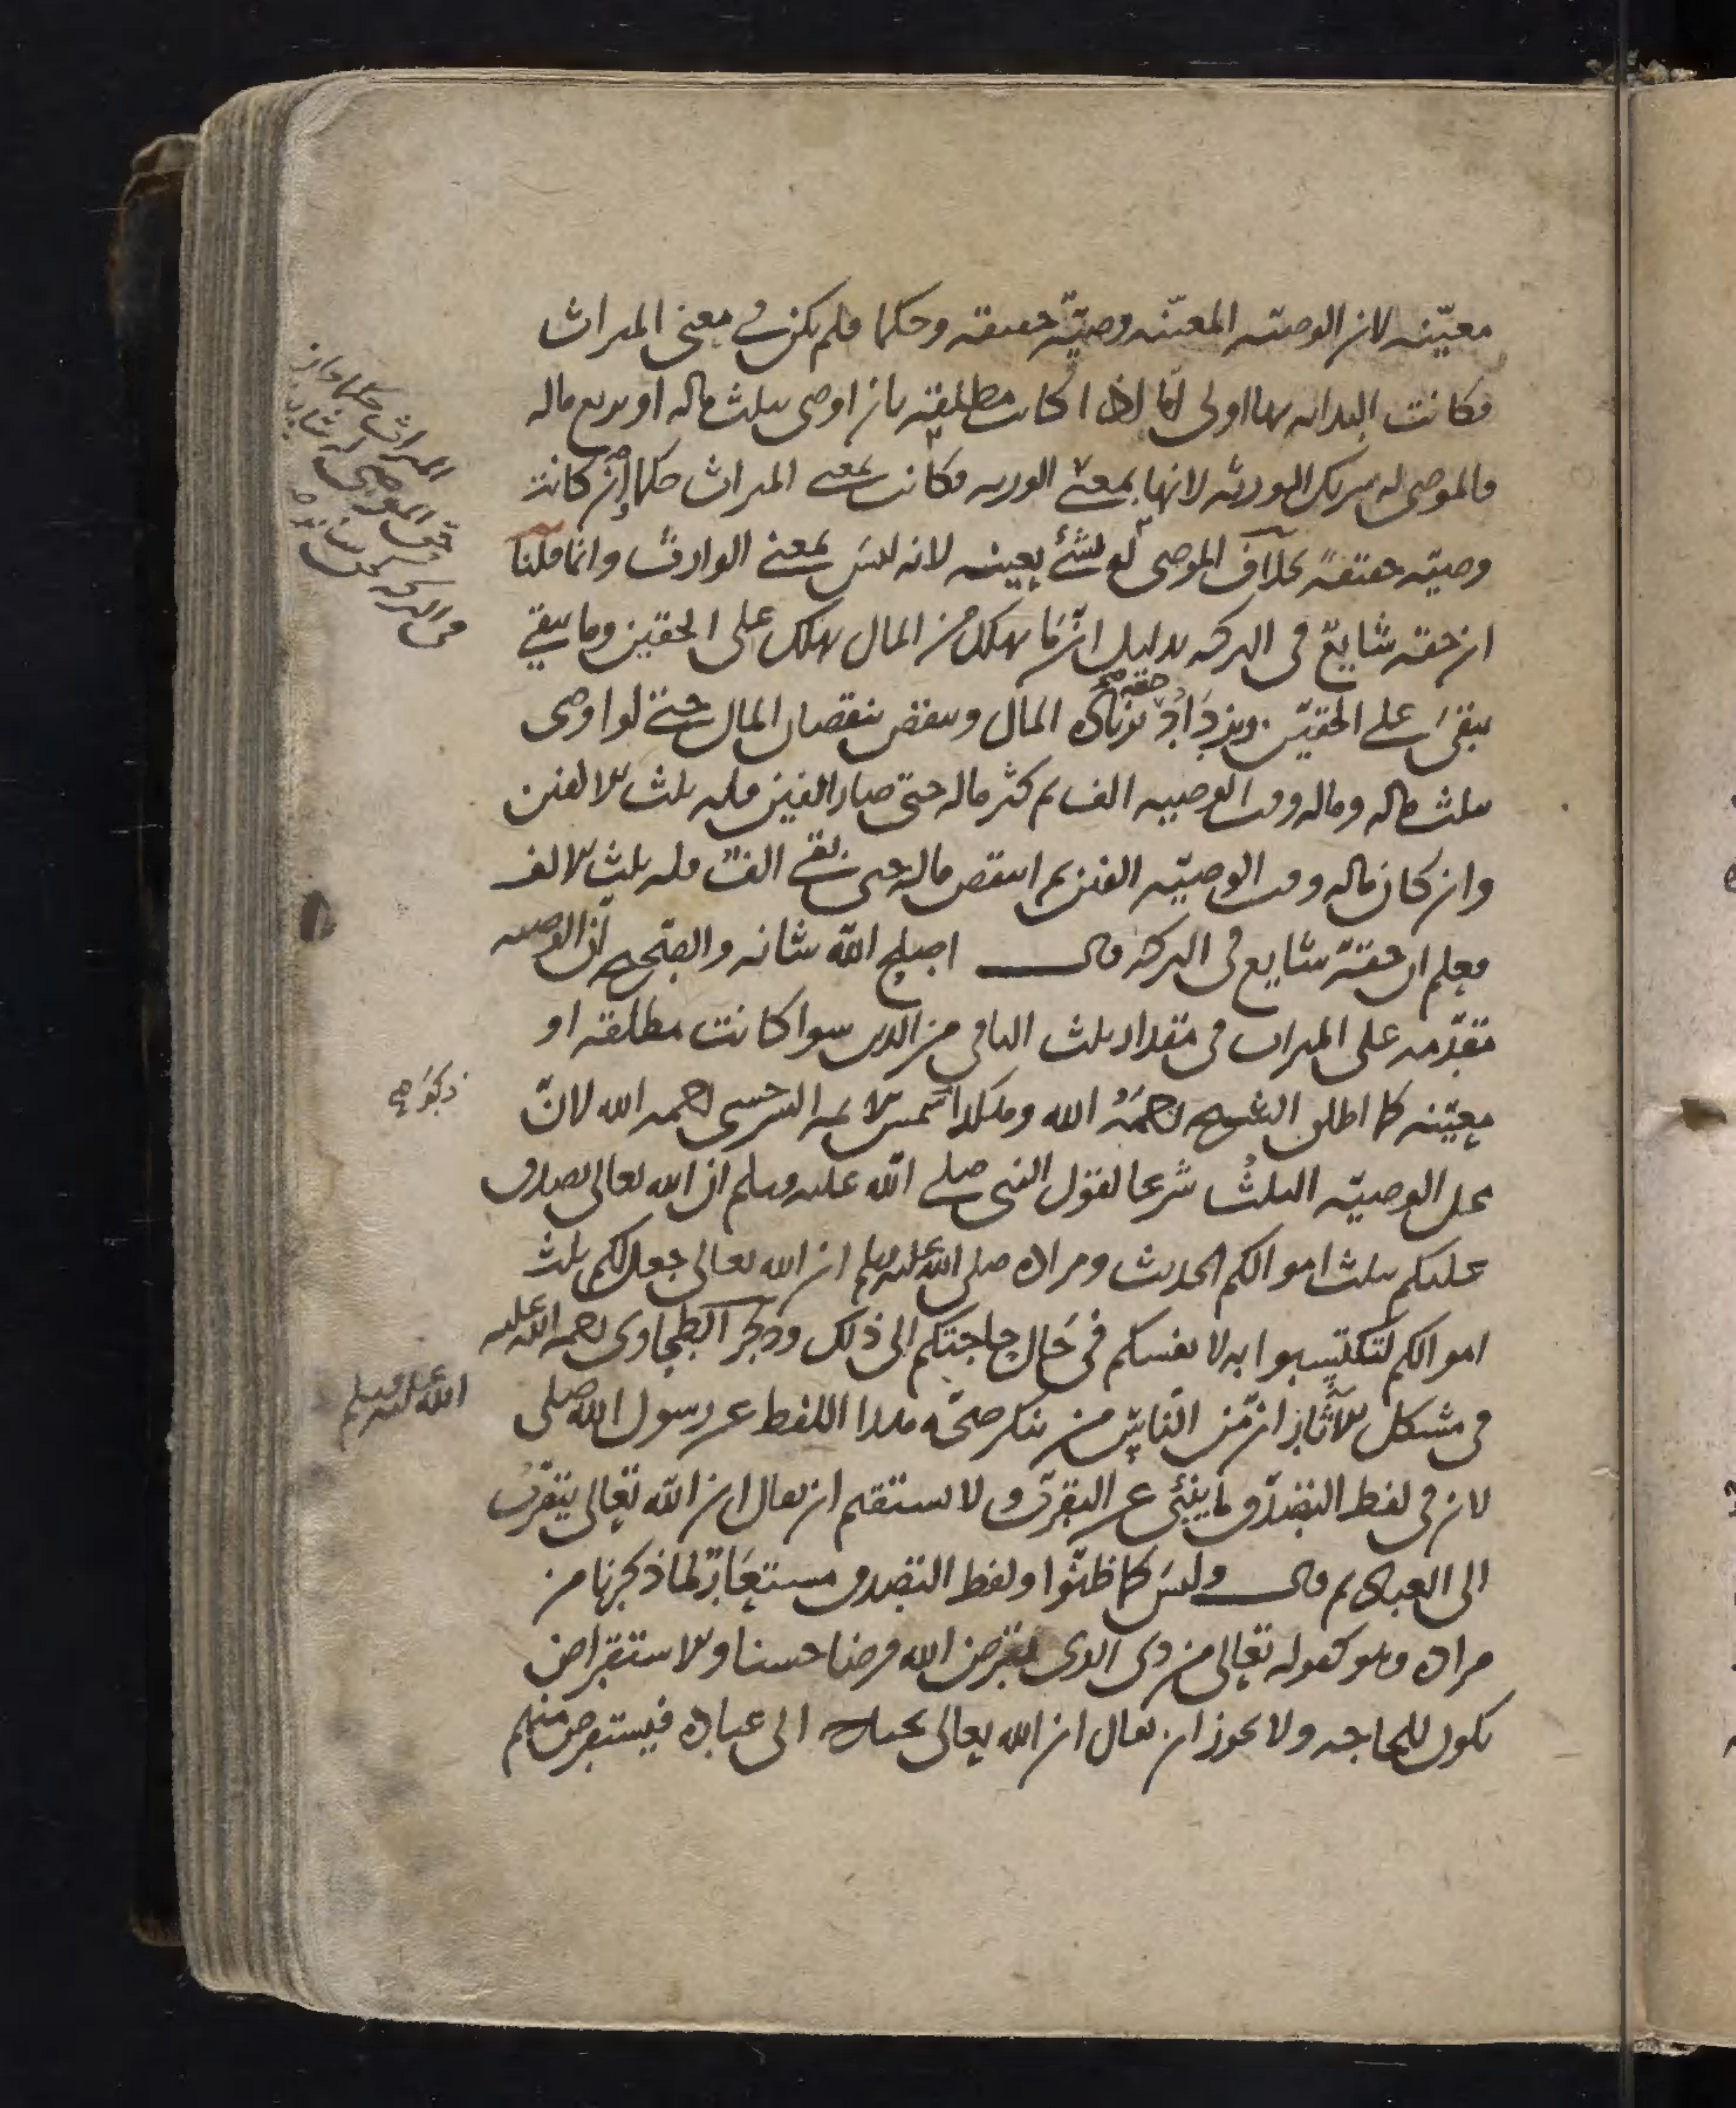 معيّنه لان الوصيه المعيّنه وصيّة حقيقه وحكما فلم يكن في معنى الميراث
فكانت البدايه بها اولى امّا اذا كانت مطلقه بان اوصى بثلث ماله او بربع ماله
فالموصى له شريك الورثه لانها بمعنى الورثه فكانت بمعنى الميراث حكما وان كانت
وصيّه حقيقةً بخلاف الموصى له بشئ بعينه لانه ليس بمعنى الوارث وانما قلنا
ان حقه شايع فى التركه بدليل انّ ما يهلك من المال يهلك على الحقين وما يبقى
يبقى على الحقين ويزداد حقه بزيادة المال وينقص بنقصان المال حتى لو اوصى
بثلث ماله وماله وقت الوصيه الف ثم كثر ماله حتى صار الفين فله ثلث الالفين
وان كان ماله وقت الوصيّه الفين ثم انتقص ماله حتى بقى الف فله ثلث الالف
فعلم ان حقه شايع فى التركه قال اصلح الله شانه والصحيح ان الوصيه
مقدّمه على الميراث فى مقدار ثلث الباقى من الدين سوا كانت مطلقه او
معيّنه كما اطلق الشيخ رحمه الله وهكذا شمس الايمه السرخسى رحمه الله لانّ
محل الوصيّه الثلث شرعا لقول النبى صلى الله عليه وسلم ان الله تعالى تصدق
عليكم بثلث اموالكم الحديث ومراده صلى الله عليه وسلم ان الله تعالى جعل لكم ثلث
اموالكم لتكتسبوا به لانفسكم فى حال حاجتكم الى ذلك وذكر الطحاوى رحمة الله عليه
فى مشكل الاثار انّ من النّاس من ينكر صحّة هذا اللفظ عن رسول الله صلى
الله عليه وسلم
لان فى لفظ التصدّق ما ينبئ عن التقرّب ولا يستقيم ان يقال ان الله تعالى يتقرّب
الى العباد ثم قال وليس كما ظنّوا ولفظ التصدق مستعارٌ لما ذكرنا من
مراده وهو كقوله تعالى من ذى الذى يقرض الله قرضا حسنا والاستقراض
يكون للحاجه ولا يجوز ان يقال ان الله تعالى محتاج الى عباده فيستقرض منهم